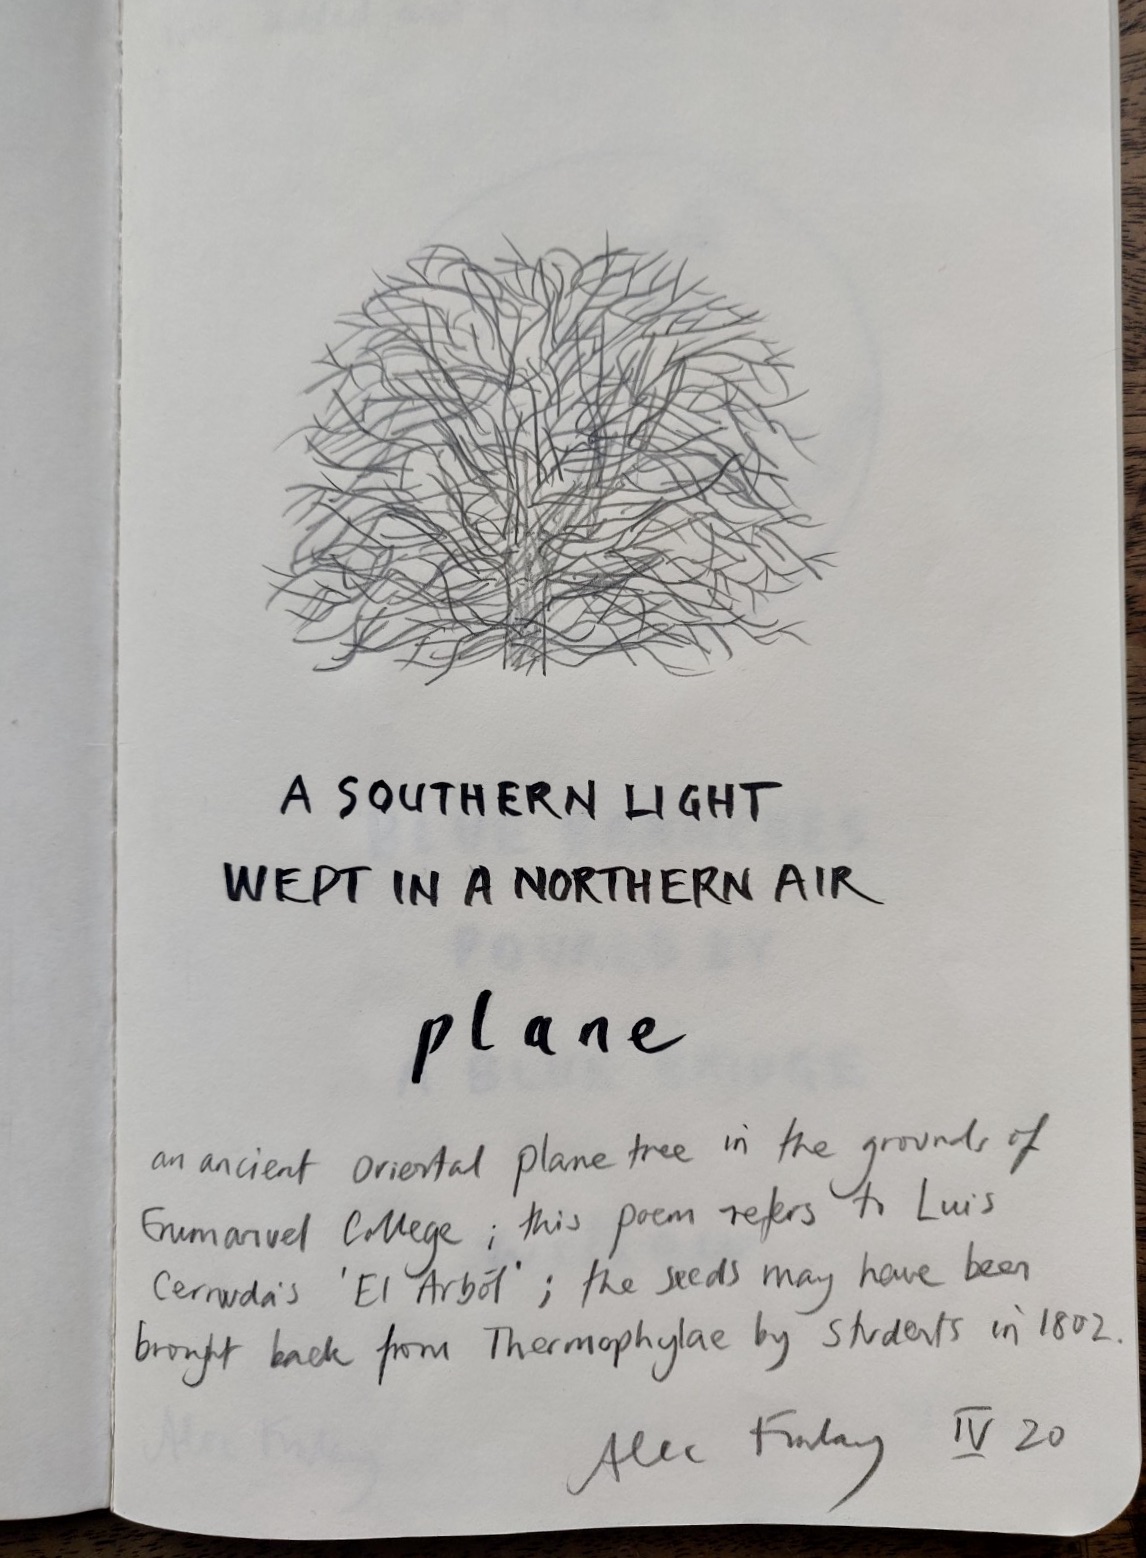 A SOUTHERN LIGHT
WEPT IN A NORTHERN AIR
plane
an ancient oriental plane tree in the grounds of
Emmanuel College ; this poem refers to Luis
Cernuda's 'El Arból' ; the seeds may have been
brought back from Thermophylae by students in 1802.
Alec Finlay IV 20